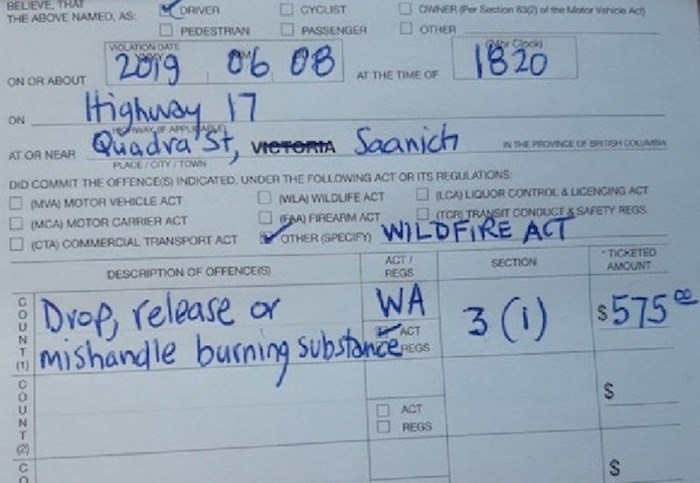 BELIEVE, THAT
THE ABOVE NAMED, AS: DRIVER CYCLIST OWNER (Per Section 83(2) of the Motor Vehicle Act)
PEDESTRIAN PASSENGER OTHER
VIOLATION DATE (24hr Clock)
ON OR ABOUT 2019 06 08 AT THE TIME OF 1820
ON Highway 17
HIGHWAY (IF APPLICABLE)
AT OR NEAR Quadra St, VICTORIA Saanich IN THE PROVINCE OF BRITISH COLUMBIA
PLACE / CITY / TOWN
DID COMMIT THE OFFENCE(S) INDICATED, UNDER THE FOLLOWING ACT OR ITS REGULATIONS:
(MVA) MOTOR VEHICLE ACT (WLA) WILDLIFE ACT (LCA) LIQUOR CONTROL & LICENCING ACT
(MCA) MOTOR CARRIER ACT (FAA) FIREARM ACT (TCR) TRANSIT CONDUCT & SAFETY REGS.
(CTA) COMMERCIAL TRANSPORT ACT OTHER (SPECIFY) WILDFIRE ACT
DESCRIPTION OF OFFENCE(S) ACT / REGS SECTION * TICKETED AMOUNT
COUNT (1) Drop, release or WA 3 (1) $575 00
mishandle burning substance ACT
REGS
COUNT (2) $
ACT
REGS
CO $